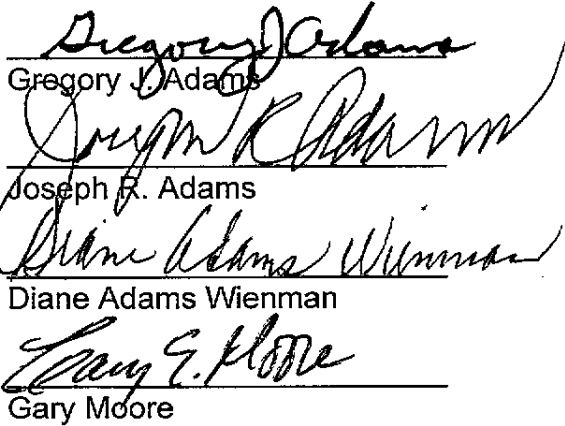 Gregory J Adams
Gregory J. Adams
Joseph R Adams
Joseph R. Adams
Diane Adams Wienman
Diane Adams Wienman
Gary E. Moore
Gary Moore